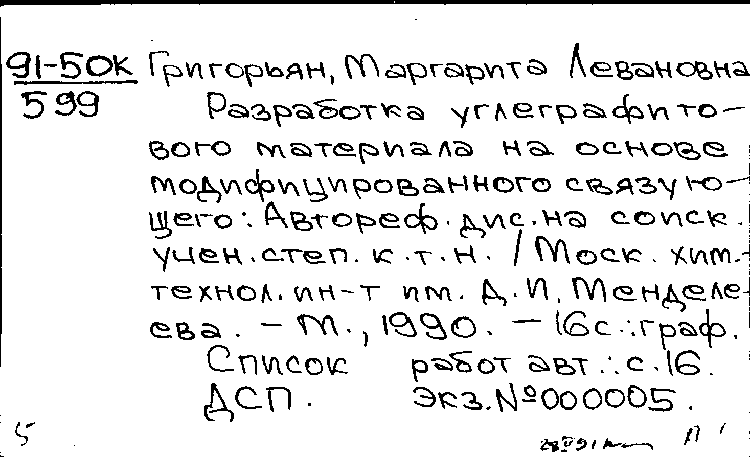 91-50К Григорьян, Маргарита Левановна
599 Разработка углеграфито-
вого материала на основе
модифицированного связую-
щего: Автореф. дис. на соиск.
учен. степ. к. т. н. / Моск. хим.-
технол. ин-т им. Д. И. Менделе-
ева. - М., 1990. - 16 с.: граф.
Список работ авт.: с. 16.
ДСП. Экз. № 000005.
5